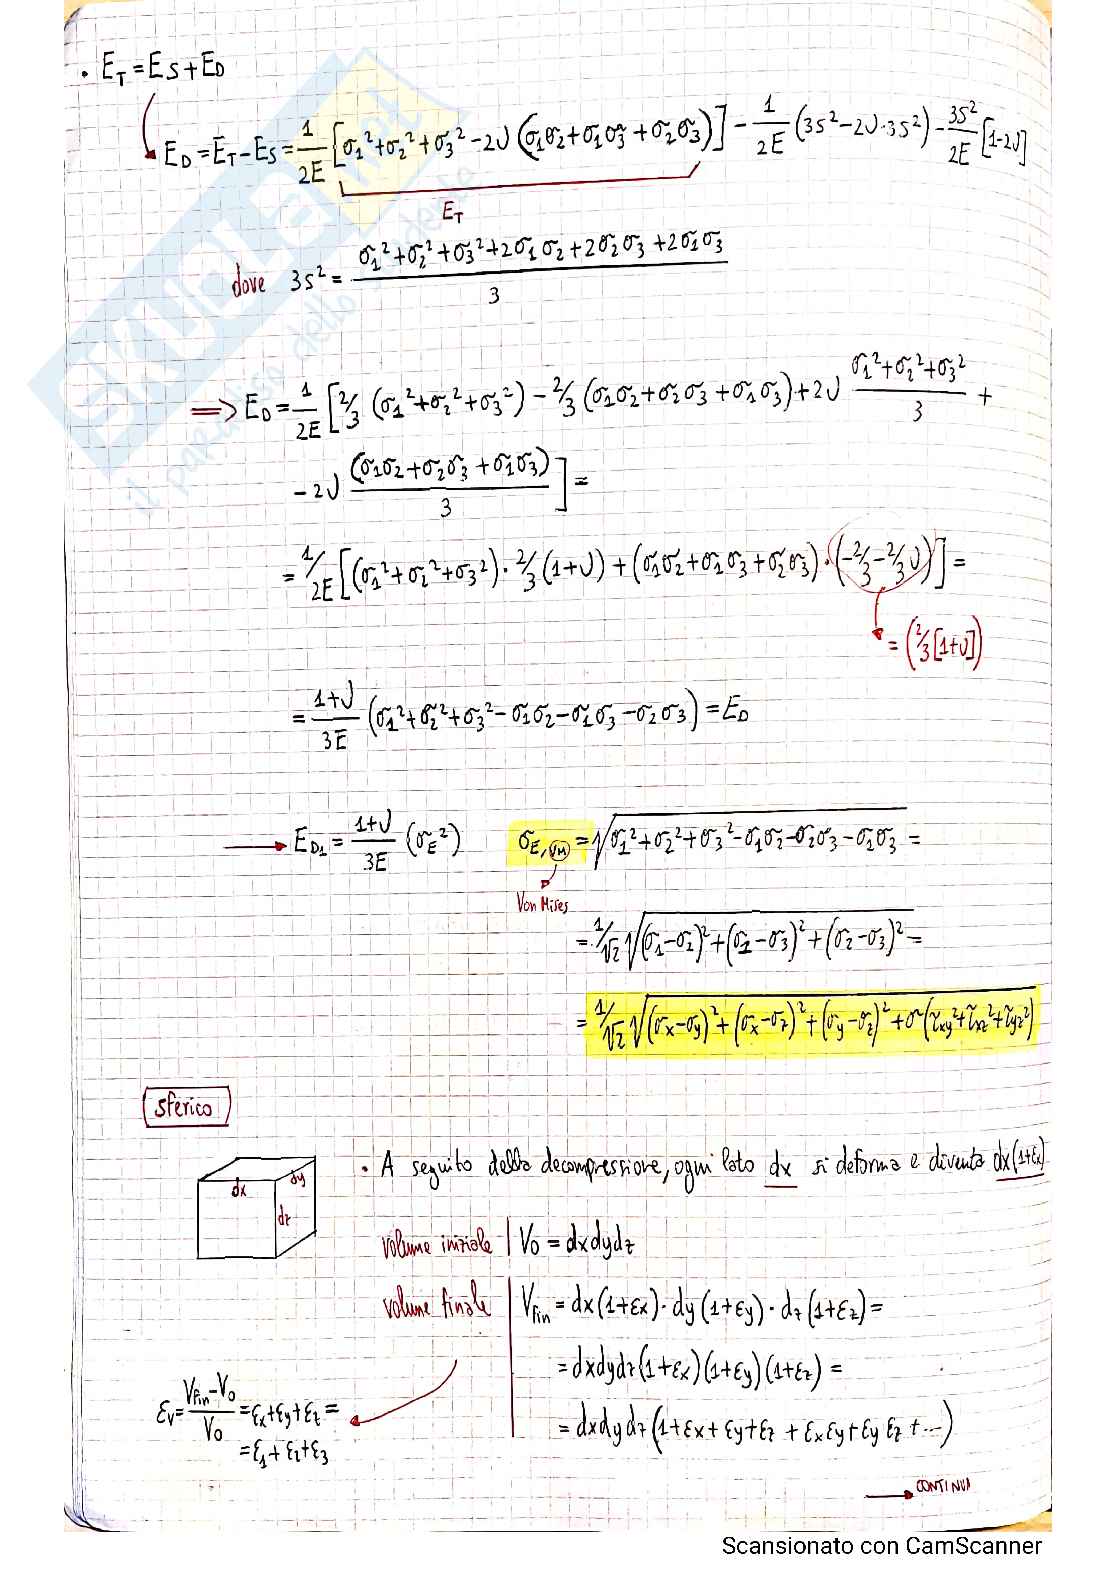 • E_T = E_S + E_D
E_D = E_T - E_S = 1/2E [σ1² + σ2² + σ3² - 2ν (σ1σ2 + σ1σ3 + σ2σ3)] - 1/2E (3s² - 2ν·3s²) - 3s²/2E [1-2ν]
E_T
dove 3s² = (σ1² + σ2² + σ3² + 2σ1σ2 + 2σ2σ3 + 2σ1σ3)/3
⇒ E_D = 1/2E [2/3 (σ1² + σ2² + σ3²) - 2/3 (σ1σ2 + σ2σ3 + σ1σ3) + 2ν (σ1² + σ2² + σ3²)/3 +
- 2ν (σ1σ2 + σ2σ3 + σ1σ3)/3 ] =
= 1/2E [(σ1² + σ2² + σ3²) · 2/3 (1+ν) + (σ1σ2 + σ1σ3 + σ2σ3) · (-2/3 - 2/3 ν)] =
= (2/3 [1+ν])
= (1+ν)/3E (σ1² + σ2² + σ3² - σ1σ2 - σ1σ3 - σ2σ3) = E_D
→ E_D1 = (1+ν)/3E (σ_E²) σ_E,VM = √(σ1² + σ2² + σ3² - σ1σ2 - σ2σ3 - σ1σ3) =
Von Mises
= 1/√2 √((σ1-σ2)² + (σ1-σ3)² + (σ2-σ3)²) =
= 1/√2 √((σx-σy)² + (σx-σz)² + (σy-σz)² + σ(τxy² + τxz² + τyz²)
sferico
dx dy dz
• A seguito della decompressione, ogni lato dx si deforma e diventa dx(1+εx)
volume iniziale | V0 = dxdydz
volume finale | Vfin = dx(1+εx) · dy(1+εy) · dz(1+εz) =
= dxdydz(1+εx)(1+εy)(1+εz) =
= dxdydz(1+εx+εy+εz + εxεy + εyεz + ...)
εv = (Vfin - V0)/V0 = εx+εy+εz =
= ε1 + ε2 + ε3
→ CONTINUA
SKUOLA.net
il paradiso dello studente
Scansionato con CamScanner